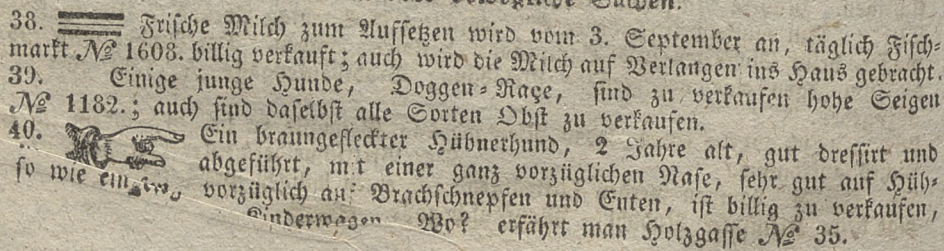 bewegliche Sachen.
38. Frische Milch zum Aufsetzen wird vom 3. September an, täglich Fisch-
markt № 1608. billig verkauft; auch wird die Milch auf Verlangen ins Haus gebracht.
39. Einige junge Hunde, Doggen-Raçe, sind zu verkaufen hohe Seigen
№ 1182.; auch sind daselbst alle Sorten Obst zu verkaufen.
40. Ein braungefleckter Hühnerhund, 2 Jahre alt, gut dressirt und
abgeführt, mit einer ganz vorzüglichen Nase, sehr gut auf Hüh-
vorzüglich auf Brachschnepfen und Enten, ist billig zu verkaufen,
so wie ein Kinderwagen. Wo? erfährt man Holzgasse № 35.